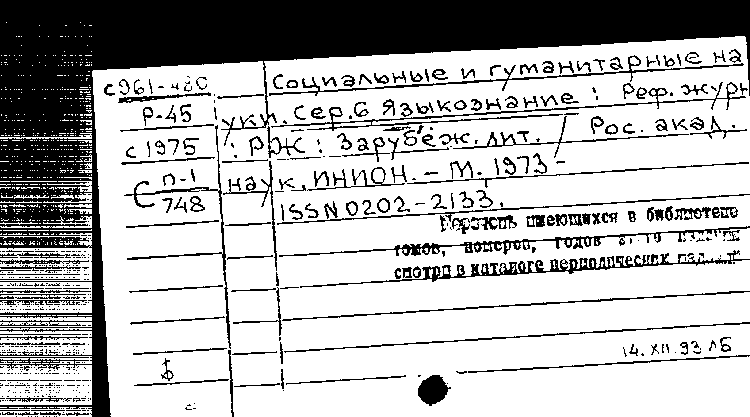 с961-480
Р-45
с 1975
С п-1
748
Социальные и гуманитарные на
уки. Сер. 6. Языкознание : Реф. журн
: РЖ : Зарубеж. лит. / Рос. акад.
наук. ИНИОН. – М. 1973 –
ISSN 0202-2133.
Перечень имеющихся в библиотеке
томов, номеров, годов
смотри в каталоге периодических
Б
14. XII. 93 ЛБ